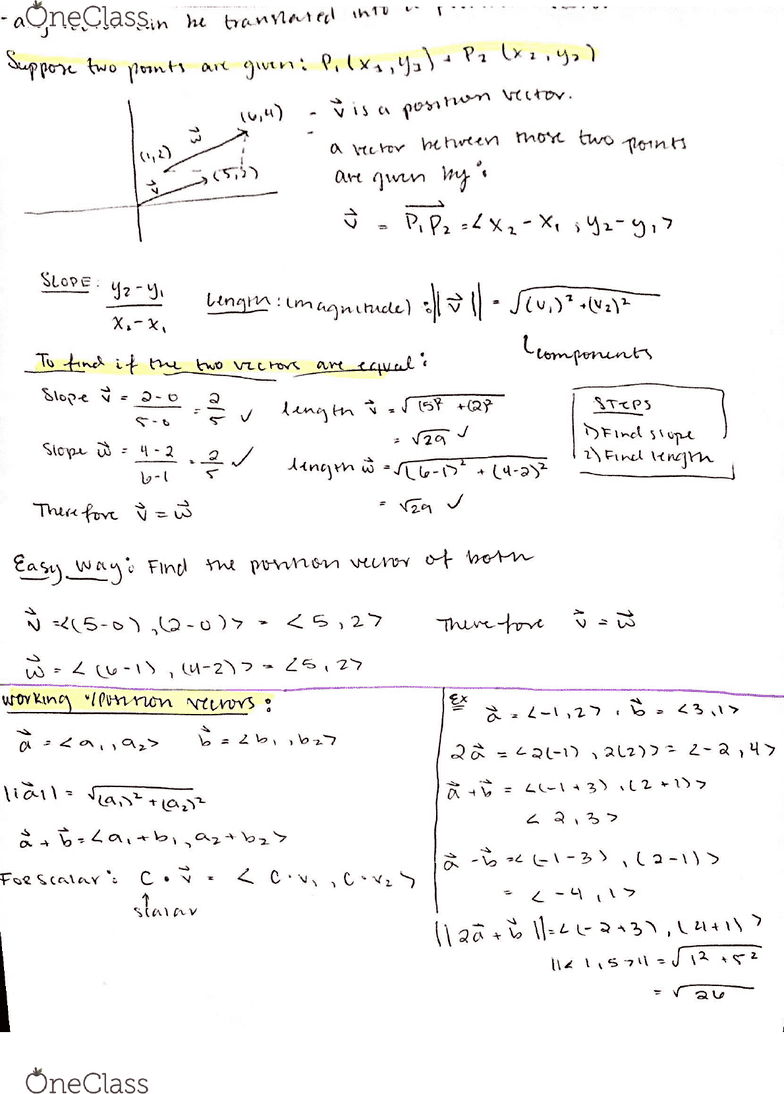 - a OneClass in be translated into a
Suppose two points are given: P₁(x₁,y₁) + P₂ (x₂,y₂)
(6,4) - v⃗ is a position vector.
w⃗
(1,2) a vector between those two points
v⃗ (5,2) are given by:
v⃗ = P₁P₂ = <x₂-x₁, y₂-y₁>
SLOPE: y₂-y₁ / x₂-x₁ Length: (magnitude): ||v⃗|| = √(v₁)²+(v₂)²
components
To find if the two vectors are equal:
Slope v⃗ = 2-0 / 5-0 = 2/5 ✓ length v⃗ = √(5)² +(2)²
= √29 ✓
STEPS
1) Find slope
2) Find length
Slope w⃗ = 4-2 / 6-1 = 2/5 ✓ length w⃗ = √(6-1)² + (4-2)²
= √29 ✓
Therefore v⃗ = w⃗
Easy way: Find the position vector of both
v⃗ = <(5-0), (2-0)> = <5,2> Therefore v⃗ = w⃗
w⃗ = <(6-1), (4-2)> = <5,2>
working w/position vectors:
a⃗ = <a₁, a₂> b⃗ = <b₁, b₂>
||a⃗|| = √(a₁)²+(a₂)²
a⃗ + b⃗ = <a₁+b₁, a₂+b₂>
For scalar: c · v⃗ = <c·v₁, c·v₂>
↑
scalar
Ex a⃗ = <-1,2>, b⃗ = <3,1>
2a⃗ = <2(-1), 2(2)> = <-2,4>
a⃗+b⃗ = <(-1+3), (2+1)>
<2,3>
a⃗-b⃗ = <(-1-3), (2-1)>
= <-4,1>
||2a⃗+b⃗|| = <(-2+3), (4+1)>
||<1,5>|| = √1²+5²
= √26
OneClass